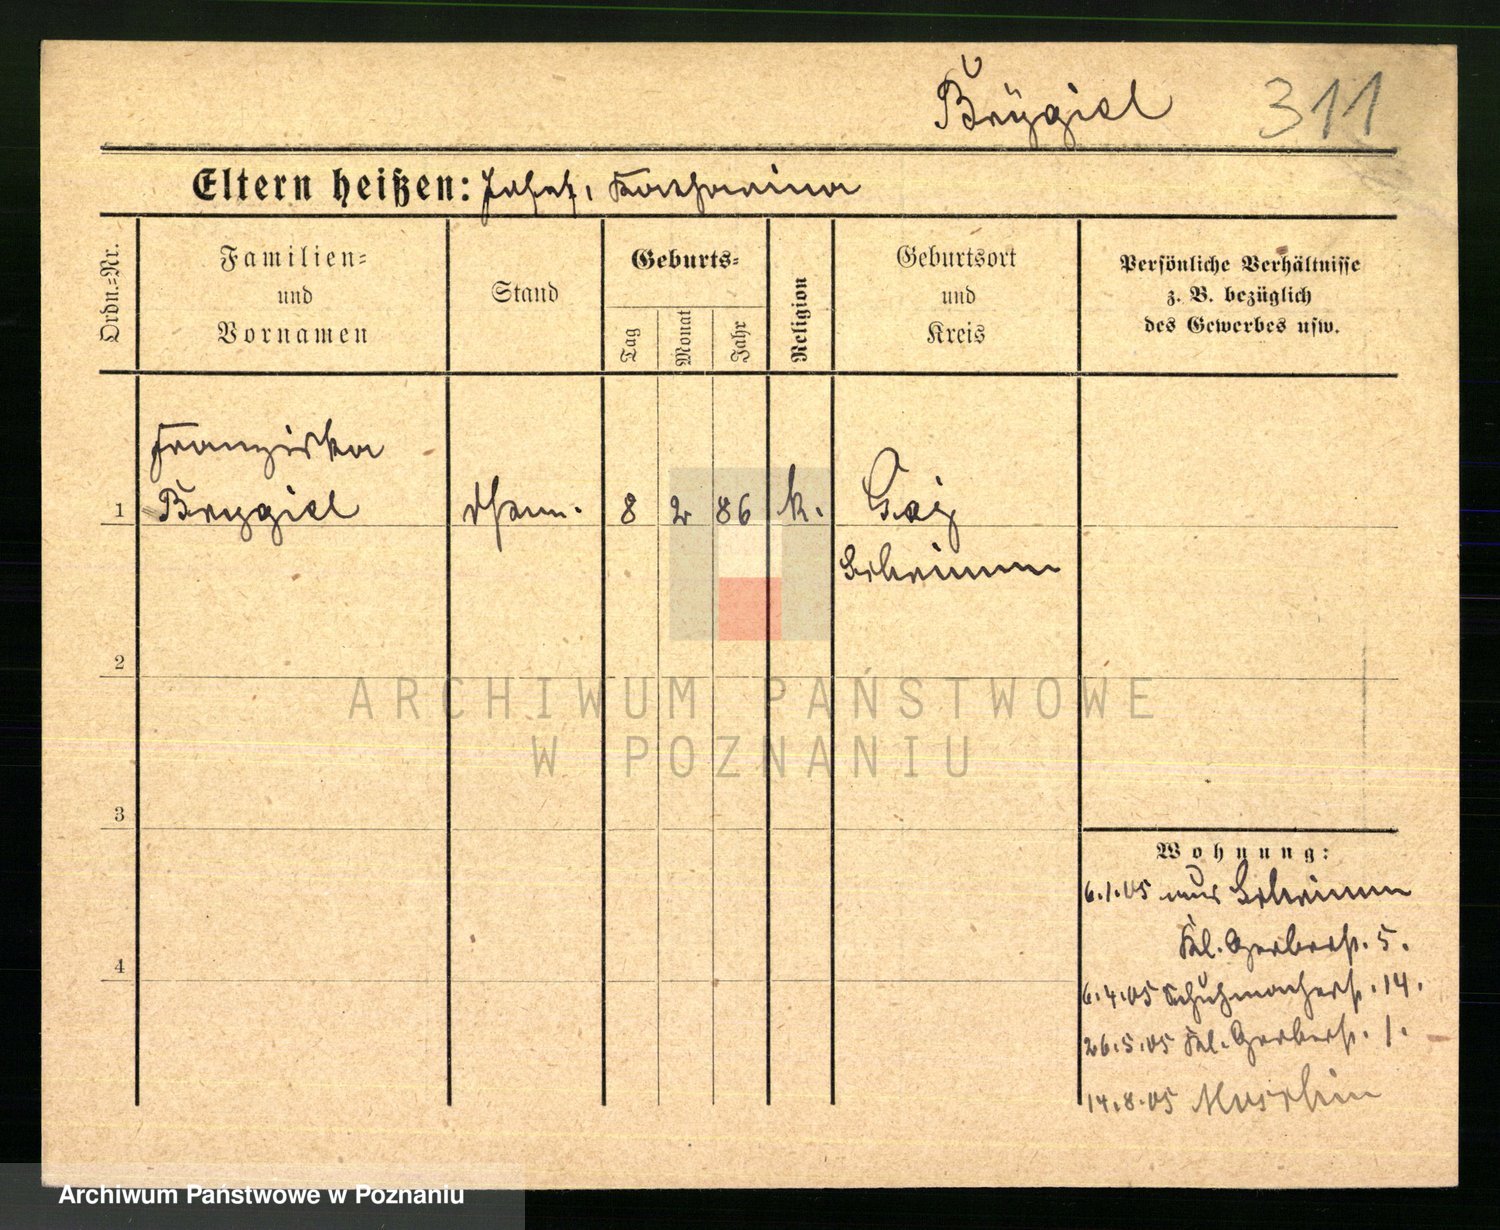 Brygiel 311
Eltern heißen: Josef, Katharina
Ordn.-Nr.
Familien-
und
Vornamen
Stand
Geburts-
Tag
Monat
Jahr
Religion
Geburtsort
und
Kreis
Persönliche Verhältnisse
z. B. bezüglich
des Gewerbes usw.
Franziska
1 Brygiel 8 2 86 k. Gaj
Schrimm
2
ARCHIWUM PAŃSTWOWE
W POZNANIU
3
Wohnung:
6.1.05 aus Schrimm
Kl. Gerberstr. 5.
4
6.4.05 Schuhmacherstr. 14.
26.5.05 Kl. Gerberstr. 1.
14.8.05 Moschin
Archiwum Państwowe w Poznaniu